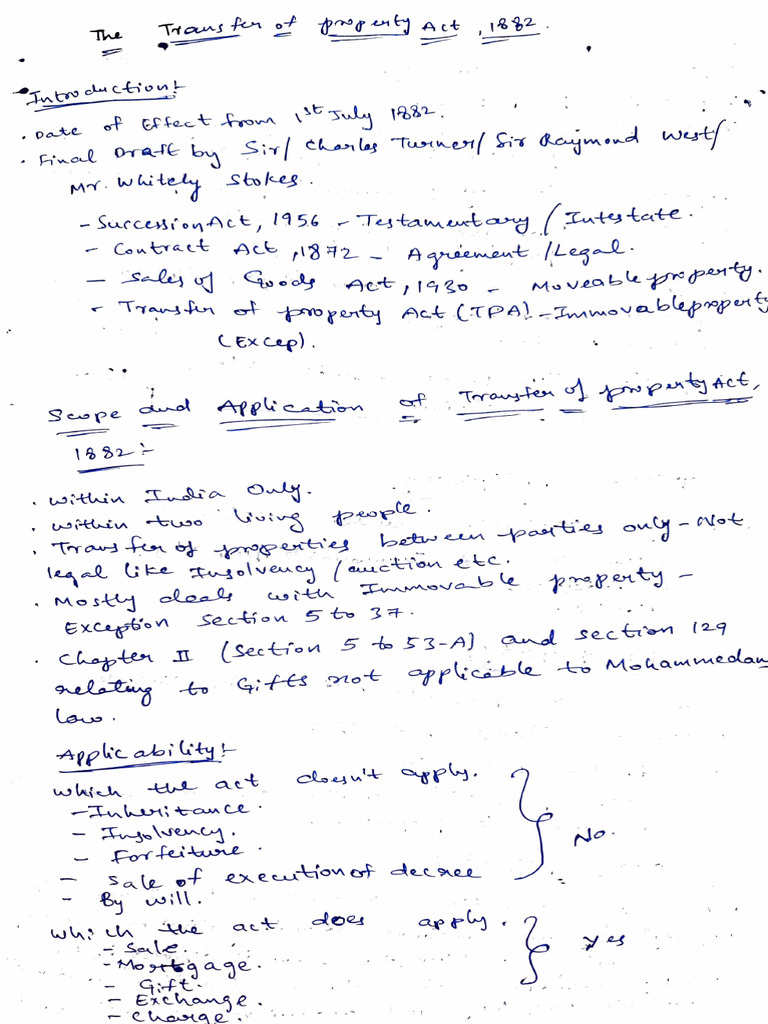 The Transfer of property Act, 1882.
Introduction:-
. Date of Effect from 1st July 1882.
. Final Draft by Sir/ Charles Turner/ Sir Raymond West/
Mr. Whitely Stokes.
- Succession Act, 1956 - Testamentary / Intestate.
- Contract Act, 1872 - Agreement / Legal.
- Sales of Goods Act, 1930 - Moveable property.
- Transfer of property Act (TPA) - Immovable property
(Excep).
Scope and Application of Transfer of property Act,
1882:-
. within India Only.
. within two living people.
. Transfer of properties between parties only - Not
legal like Insolvency / auction etc.
. Mostly deals with Immovable property -
Exception section 5 to 37.
. Chapter II (Section 5 to 53-A) and section 129
relating to Gifts not applicable to Mohammedan
law.
Applicability:-
which the act doesn't apply.
- Inheritance.
- Insolvency.
- Forfeiture.
- Sale of execution of decree
- By will.
No.
which the act does apply.
- Sale.
- Mortgage.
- Gift.
- Exchange.
- Charge.
Yes